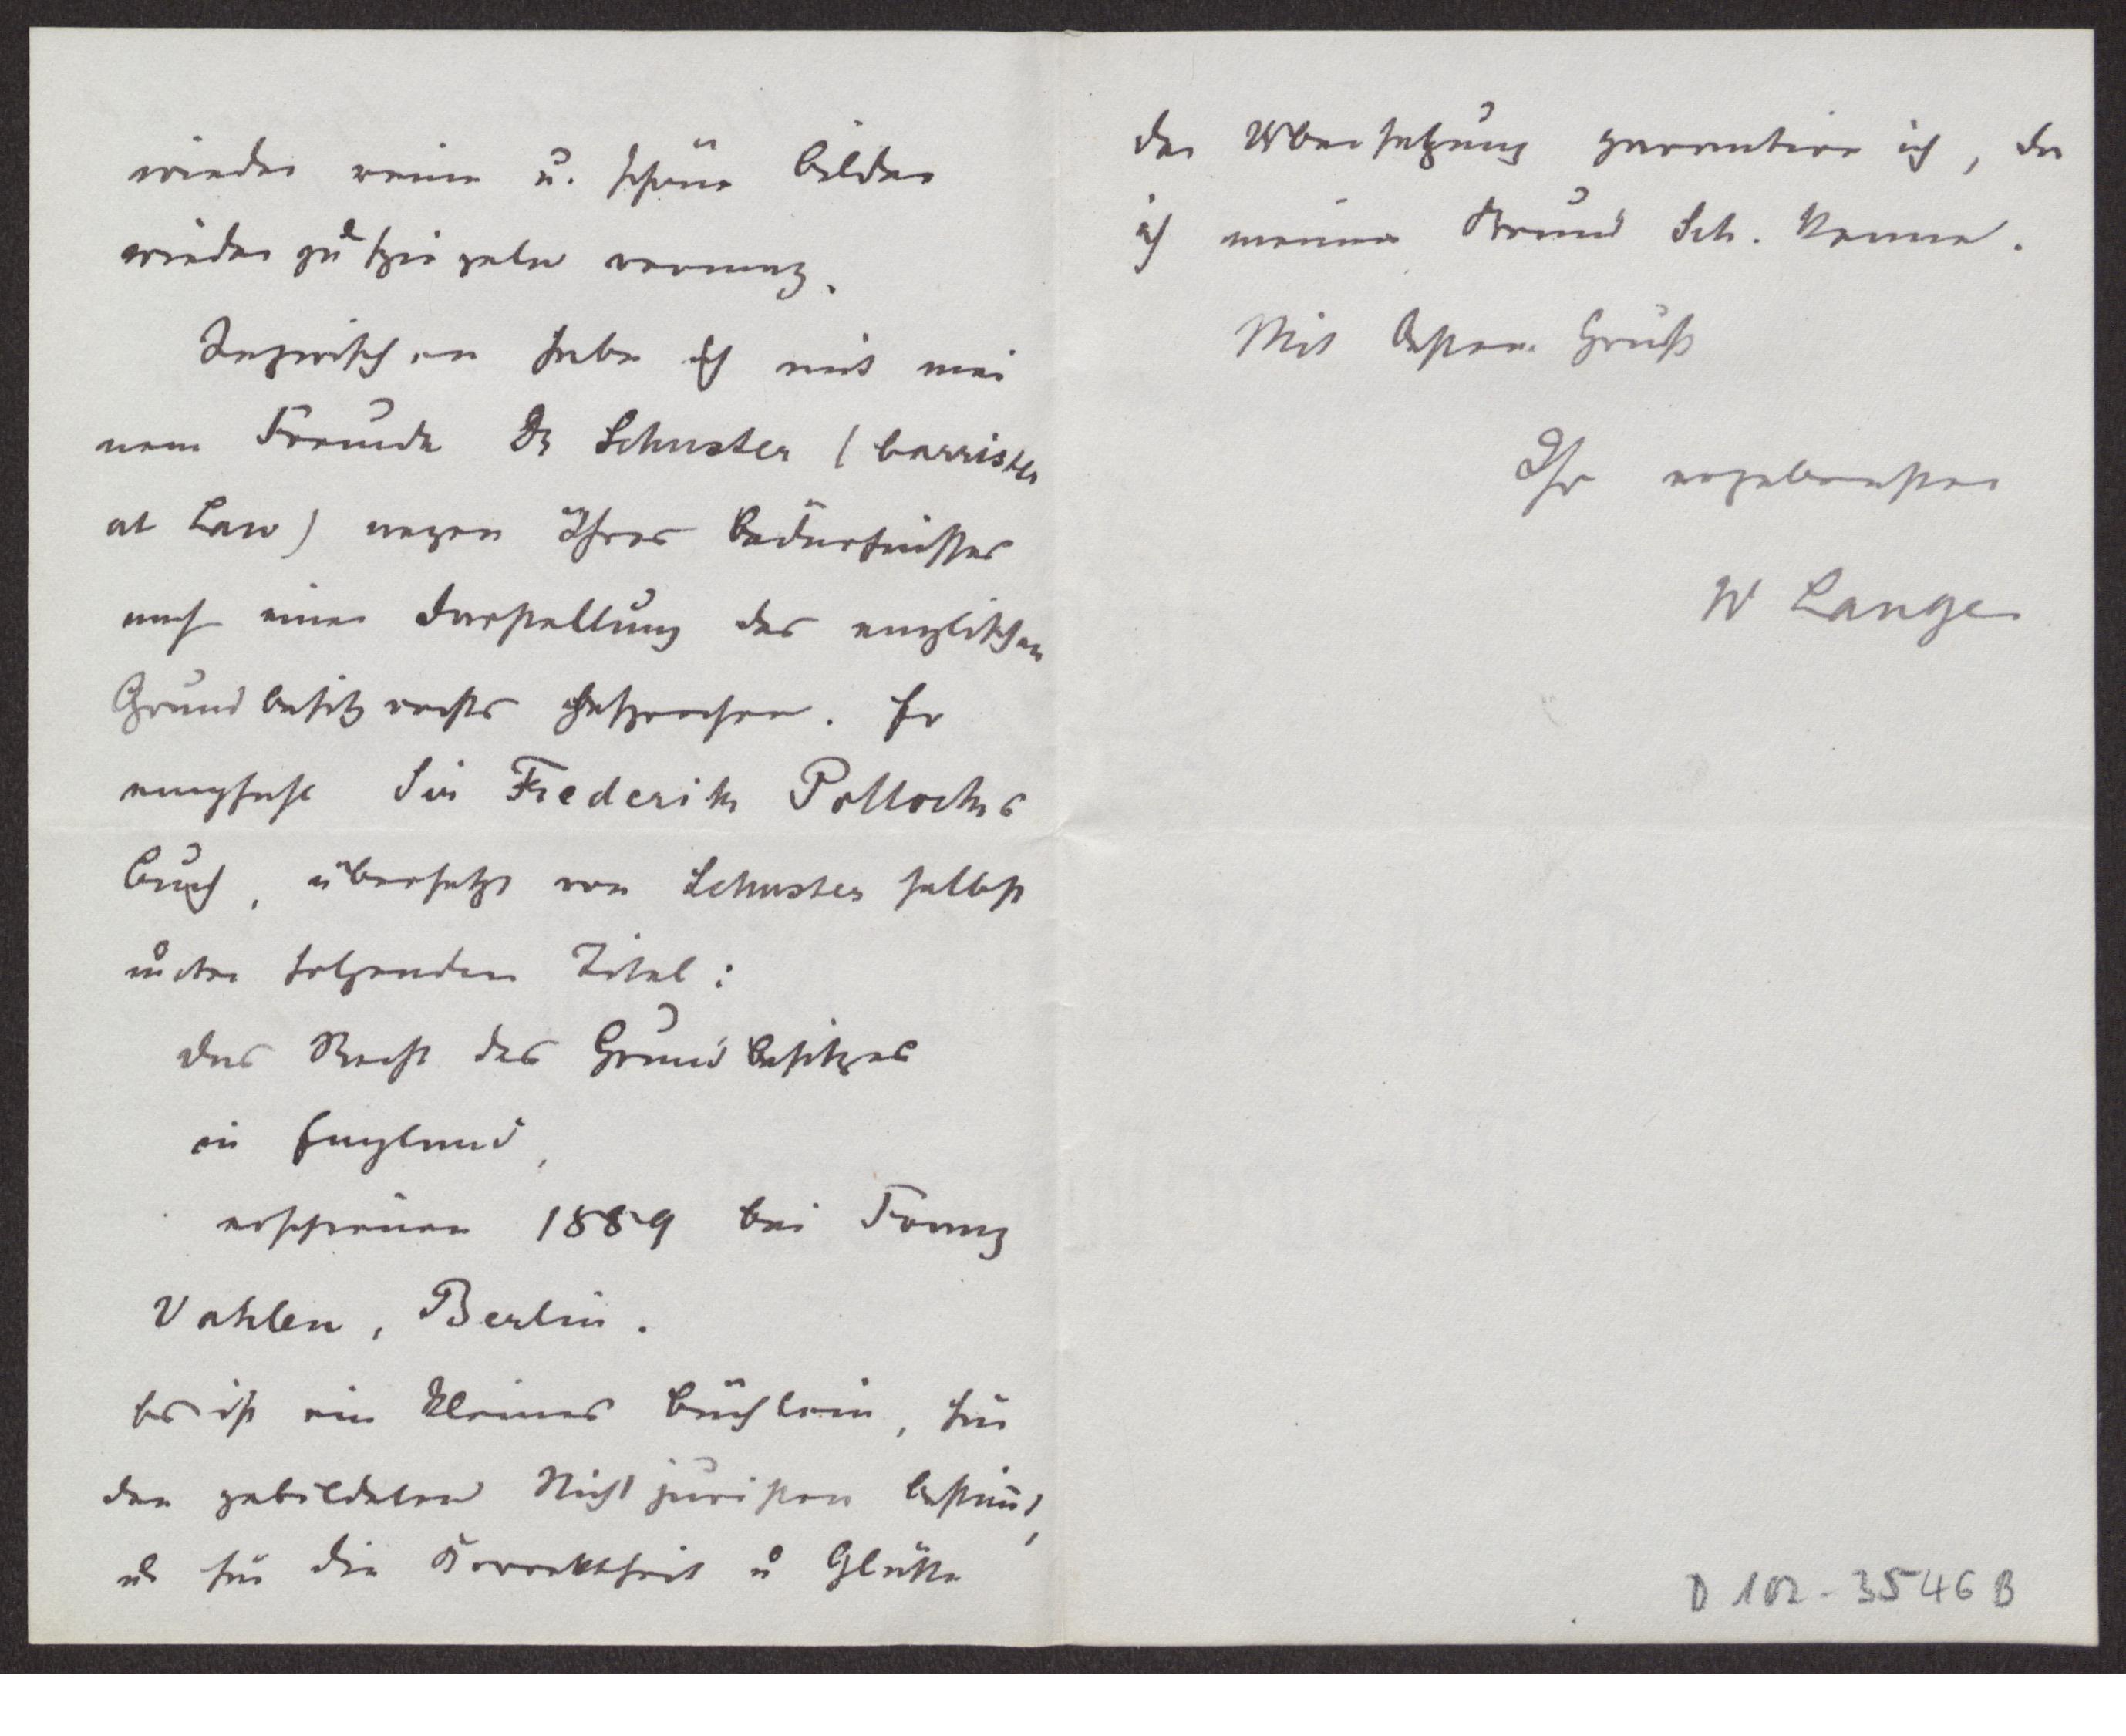 wieder reine u. schöne Bilder
wieder zu spiegeln vermag.
Inzwischen habe ich mit mei
nem Freunde Dr Schuster (barrister
at Law) wegen Ihres Bedürfnisses
nach einer Darstellung des englischen
Grundbesitzrechts gesprochen. Er
empfahl Sir Frederik Pollocks
Buch, übersetzt von Schuster selbst
unter folgendem Titel:
Das Recht des Grundbesitzes
in England,
erschienen 1889 bei Franz
Vahlen, Berlin.
Es ist ein kleines Büchlein, für
den gebildeten Nichtjuristen bestimt,
u für die Korrektheit u Glätte
der Übersetzung garantire ich, da
ich meinen Freund Sch. kenne.
Mit bestem Gruß
Ihr ergebenster
W Lange
D 102-3546 B